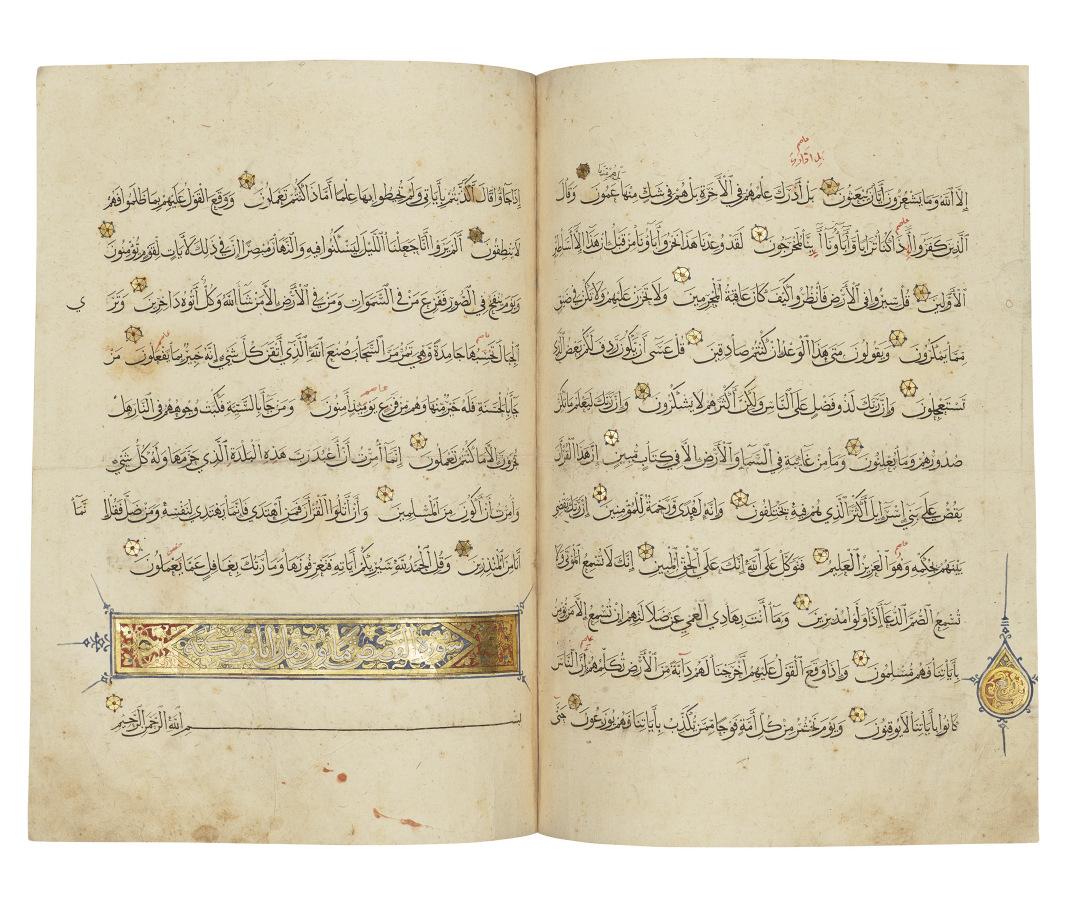 عاصم
بل ادارك
بل هم منها
إلا الله وما يشعرون أيان يبعثون بل أدرك علمهم في الآخرة بل هم في شك منها عمون وقال
الذين كفروا أإذا كنا ترابا وآباؤنا أإنا لمخرجون لقد وعدنا هذا نحن وآباؤنا من قبل إن هذا إلا أساطير
الأولين قل سيروا في الأرض فانظروا كيف كان عاقبة المجرمين ولا تحزن عليهم ولا تكن في ضيق
مما يمكرون ويقولون متى هذا الوعد إن كنتم صادقين قل عسى أن يكون ردف لكم بعض الذي
تستعجلون وإن ربك لذو فضل على الناس ولكن أكثرهم لا يشكرون وإن ربك ليعلم ما تكن
صدورهم وما يعلنون وما من غائبة في السماء والأرض إلا في كتاب مبين إن هذا القرآن
يقص على بني إسرائيل أكثر الذي هم فيه يختلفون وإنه لهدى ورحمة للمؤمنين إن ربك يقضي
بينهم بحكمه وهو العزيز العليم فتوكل على الله إنك على الحق المبين إنك لا تسمع الموتى ولا
تسمع الصم الدعاء إذا ولوا مدبرين وما أنت بهادي العمي عن ضلالتهم إن تسمع إلا من يؤمن
بآياتنا فهم مسلمون وإذا وقع القول عليهم أخرجنا لهم دابة من الأرض تكلمهم إن الناس
كانوا بآياتنا لا يوقنون ويوم نحشر من كل أمة فوجا ممن يكذب بآياتنا فهم يوزعون حتى
إذا جاؤا قال أكذبتم بآياتي ولم تحيطوا بها علما أماذا كنتم تعملون ووقع القول عليهم بما ظلموا فهم
لا ينطقون ألم يروا أنا جعلنا الليل ليسكنوا فيه والنهار مبصرا إن في ذلك لآيات لقوم يؤمنون
ويوم ينفخ في الصور ففزع من في السموات ومن في الأرض إلا من شاء الله وكل أتوه داخرين وترى
الجبال تحسبها جامدة وهي تمر مر السحاب صنع الله الذي أتقن كل شيء إنه خبير بما يفعلون من
جاء بالحسنة فله خير منها وهم من فزع يومئذ آمنون ومن جاء بالسيئة فكبت وجوههم في النار هل
تجزون إلا ما كنتم تعملون إنما أمرت أن أعبد رب هذه البلدة الذي حرمها وله كل شيء
وأمرت أن أكون من المسلمين وأن أتلوا القرآن فمن اهتدى فإنما يهتدي لنفسه ومن ضل فقل إنما
أنا من المنذرين وقل الحمد لله سيريكم آياته فتعرفونها وما ربك بغافل عما يعملون
سورة القصص
بسم الله الرحمن الرحيم